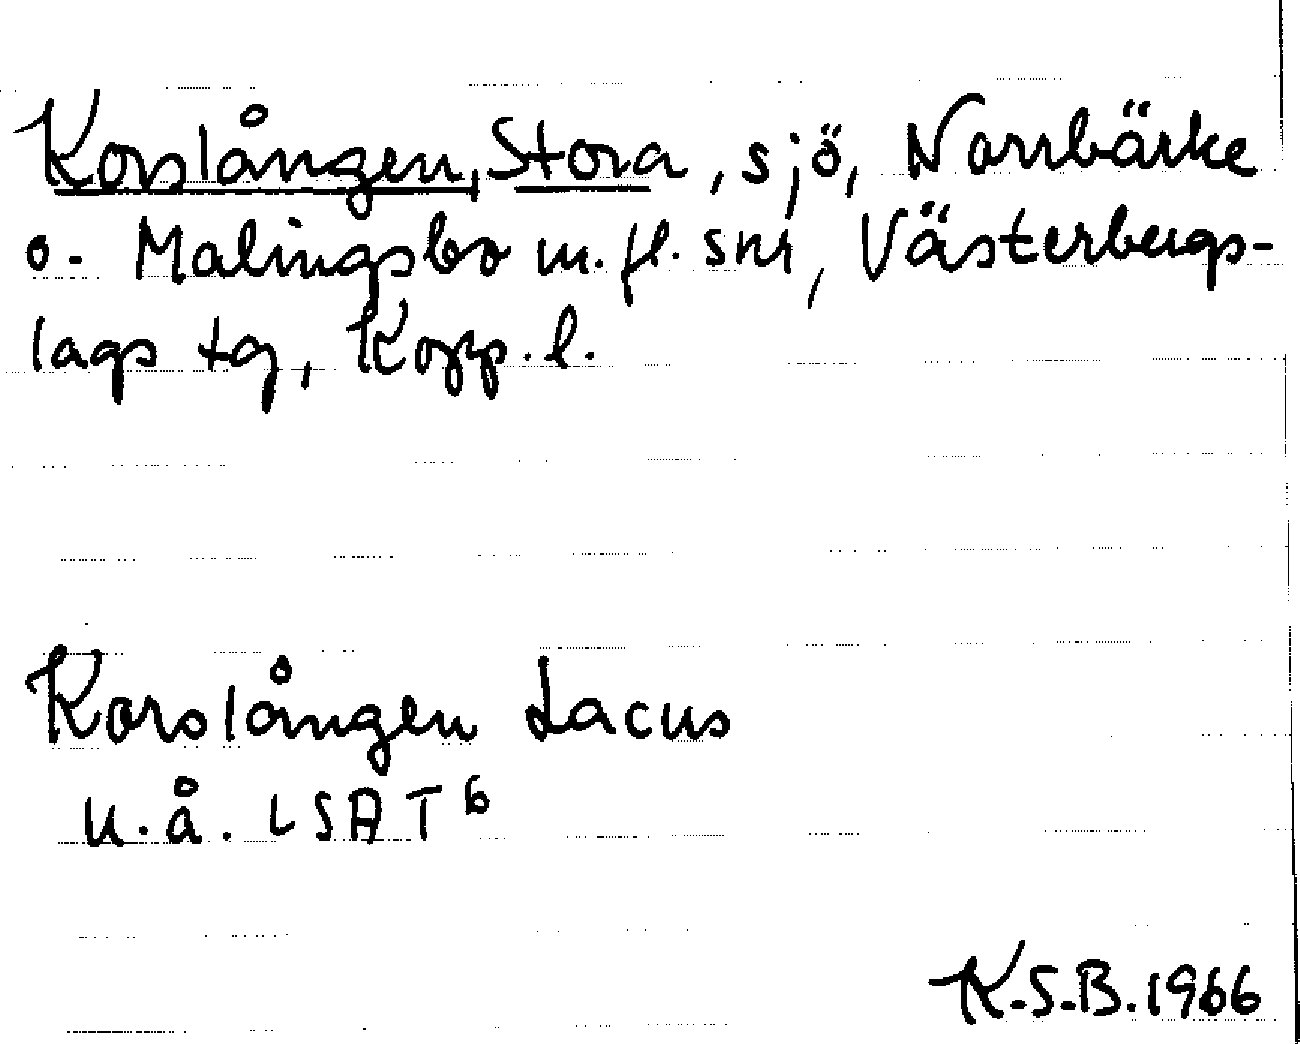 Korslången, Stora, sjö, Norrbärke
o. Malingsbo m.fl. snr, Västerbergs-
lags tg, Kopp. l.
Korslången Lacus
u.å. LSAT 6
K.S.B. 1966